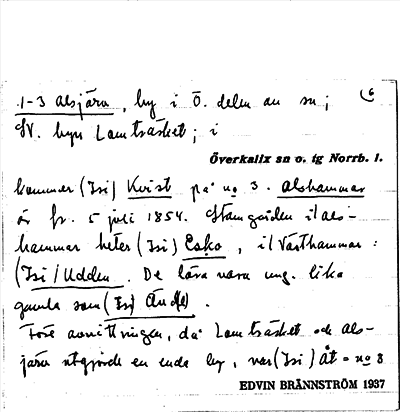 1-3 alsjärv, by i Ö. delen av sn;
SV. byn Lomträsket; i
Överkalix sn o. tg Norrb. l.
kommer (Isi) Kvist på no 3. alshammar
är fr. 5 juli 1854. Stamgården i als-
hammar heter (Isi) Esko, i Västhammar:
(Isi/Udden. De lära vara ung. lika
gamla som (Isi)
Före avvittringen, då Lomträsket och als-
järv utgjorde en enda by, var (Isi) Åt = no 3
EDVIN BRÄNNSTRÖM 1937
6